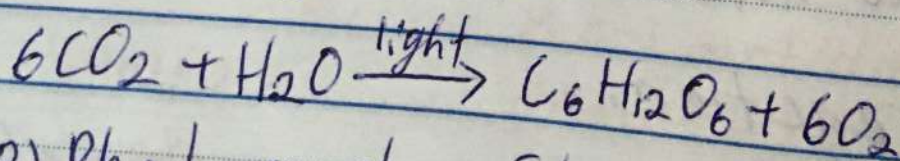 6CO₂ + H₂O light→ C₆H₁₂O₆ + 6O₂